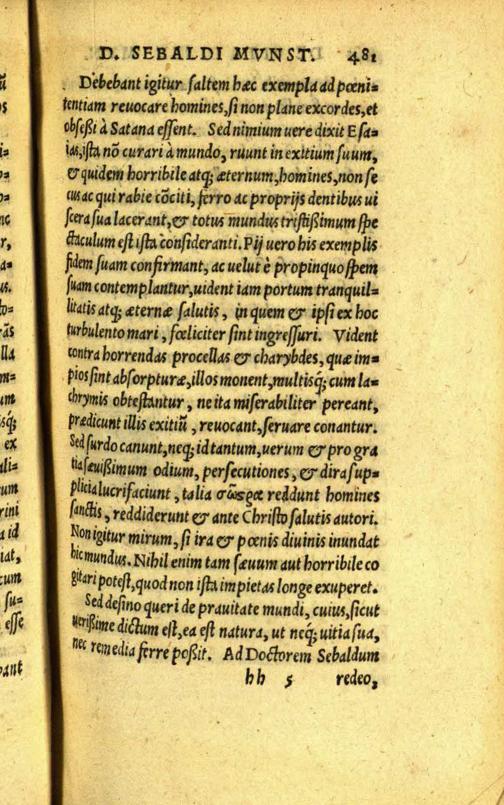 D. SEBALDI MVNST. 481
Debebant igitur saltem hæc exempla ad pœni=
tentiam reuocare homines, si non plane excordes, et
obseßi à Satana essent. Sed nimium uere dixit Esa=
ias, ista nõ curari à mundo, ruunt in exitium suum,
& quidem horribile atq; æternum, homines, non se
cus ac qui rabie cõciti, ferro ac proprijs dentibus ui
scera sua lacerant, & totus mundus tristißimum spe
ctaculum est ista consideranti. Pij uero his exemplis
fidem suam confirmant, ac uelut è propinquo spem
suam contemplantur, uident iam portum tranquil=
litatis atq; æternæ salutis, in quem & ipsi ex hoc
turbulento mari, fœliciter sint ingressuri. Vident
contra horrendas procellas & charybdes, quæ im=
pios sint absorpturæ, illos monent, multisq; cum la=
chrymis obtestantur, ne ita miserabiliter pereant,
prædicunt illis exitiũ, reuocant, seruare conantur.
Sed surdo canunt, neq; id tantum, uerum & pro gra
tia sæuißimum odium, persecutiones, & dira sup=
plicia lucrifaciunt, talia σῶςρα reddunt homines
sanctis, reddiderunt & ante Christo salutis autori.
Non igitur mirum, si ira & pœnis diuinis inundat
hic mundus. Nihil enim tam sæuum aut horribile co
gitari potest, quod non ista impietas longe exuperet.
Sed desino queri de prauitate mundi, cuius, sicut
uerißime dictum est, ea est natura, ut neq; uitia sua,
nec remedia ferre poßit. Ad Doctorem Sebaldum
hh 5 redeo,